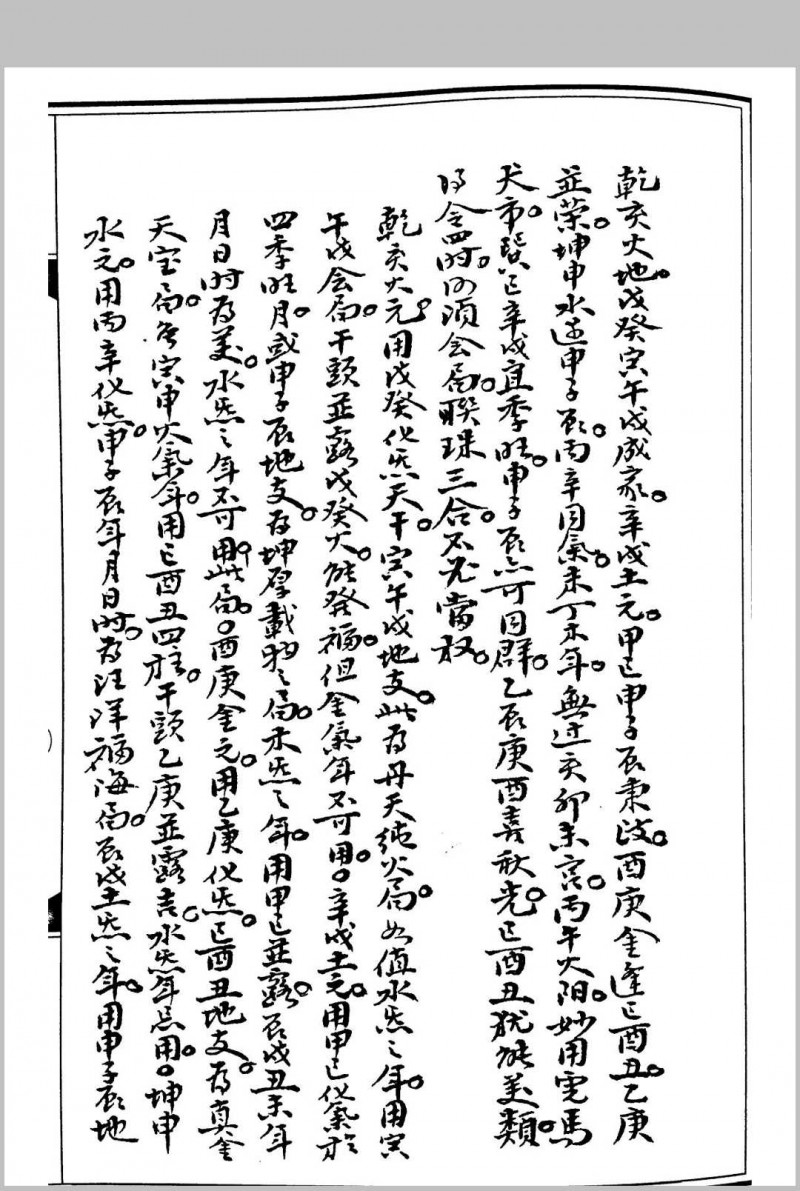 乾亥火地。戊癸寅午戌成家。辛戌土元。甲己申子辰東波。酉庚金逢巳酉丑。乙庚
並榮。坤申水運申子辰。丙辛同氣未丁未年。無过亥卯未宫。丙午火阳。妙用寅馬
犬市。巽巳辛戌宜季旺。申子辰亦可同群。乙辰庚酉喜秋光。巳酉丑犹能美類。
得令四时。必须会局。聯珠三合。不凡當权。
乾亥火元。用戊癸化炁天干。寅午戌地支。此为丹天純火局。如值水炁之年。用寅
午戌会局。干頭並露戊癸火。能發福。但金氣年不可用。辛戌土元。用甲己化氣於
四季旺月。或申子辰地支。为坤厚載物之局。木炁之年。用甲己並露。辰戌丑未年
月日时为美。水炁之年不可用此局。酉庚金元。用乙庚化炁。巳酉丑地支。为真金
天宝局。若寅申火氣年。用巳酉丑四柱。干頭乙庚並露吉。水炁年忌用。坤申
水元。用丙辛化炁。申子辰年月日时。为汪洋福海局。辰戌土炁之年。用申子辰地